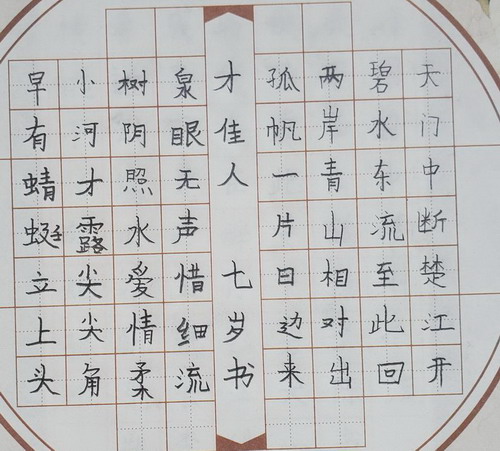 天门中断楚江开
碧水东流至此回
两岸青山相对出
孤帆一片日边来
才佳人 七岁书
泉眼无声惜细流
树阴照水爱情柔
小河才露尖尖角
早有蜻蜓立上头